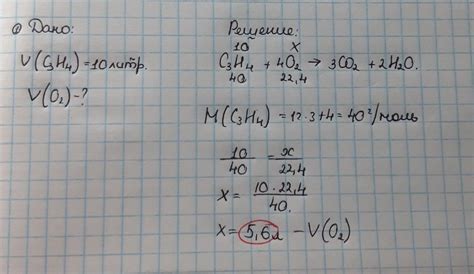 ① Дано:
V(C₃H₄)=10 литр.
V(O₂)-?
Решение:
10 x
C₃H₄ + 4O₂ → 3CO₂ + 2H₂O.
40 22,4
M(C₃H₄)=12·3+4=40 г/моль
10/40 = x/22,4
x = 10·22,4/40.
x = 5,6л – V(O₂)